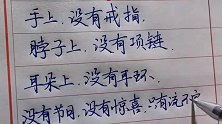 手上、没有戒指.
脖子上、没有项链.
耳朵上、没有耳环、
没有节日、没有惊喜、只有流不完